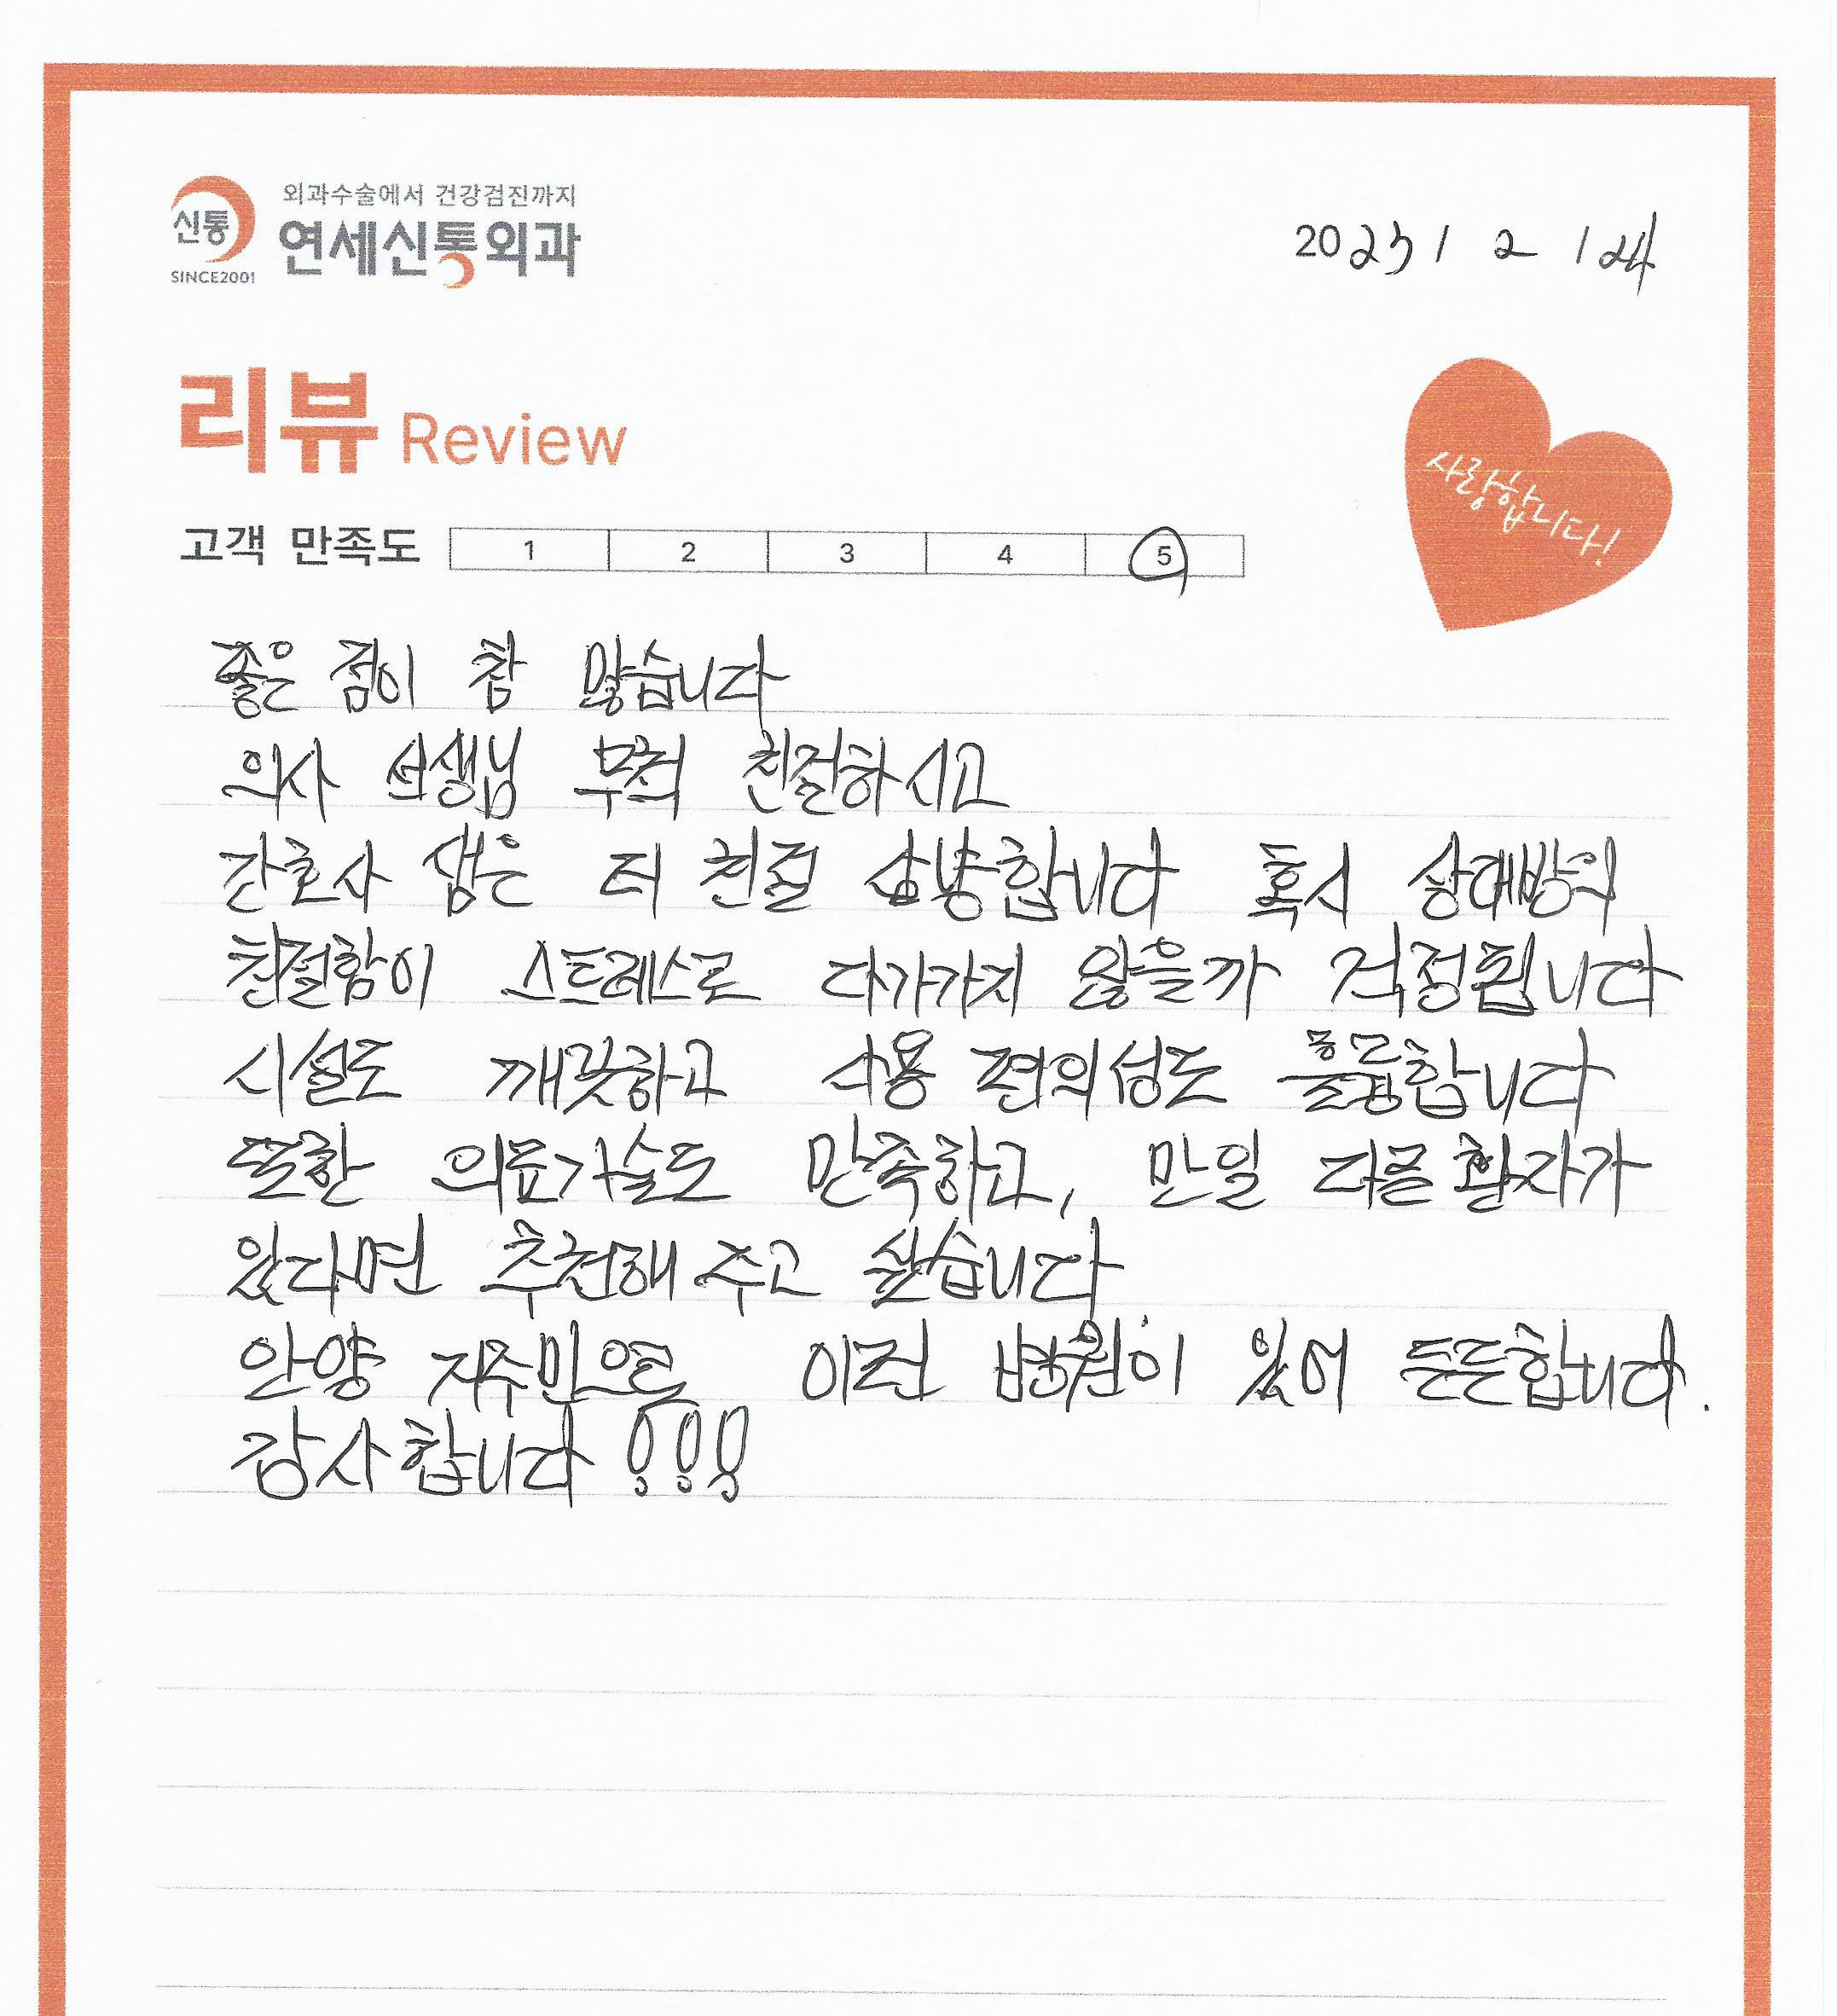 외과수술에서 건강검진까지
신통
연세신통외과
SINCE2001
2023 / 2 / 24
리뷰 Review
사랑합니다!
고객 만족도 1 2 3 4 5
좋은 점이 참 많습니다
의사 선생님 무척 친절하시고
간호사 샘은 더 친절 상냥합니다 혹시 상대방의
친절함이 스트레스로 다가가지 않을까 걱정됩니다
시설도 깨끗하고 사용 편의성도 훌륭합니다
또한 의료기술도 만족하고, 만일 다른 환자가
있다면 추천해 주고 싶습니다
안양 거주민으로 이런 병원이 있어 든든합니다.
감사합니다!!!